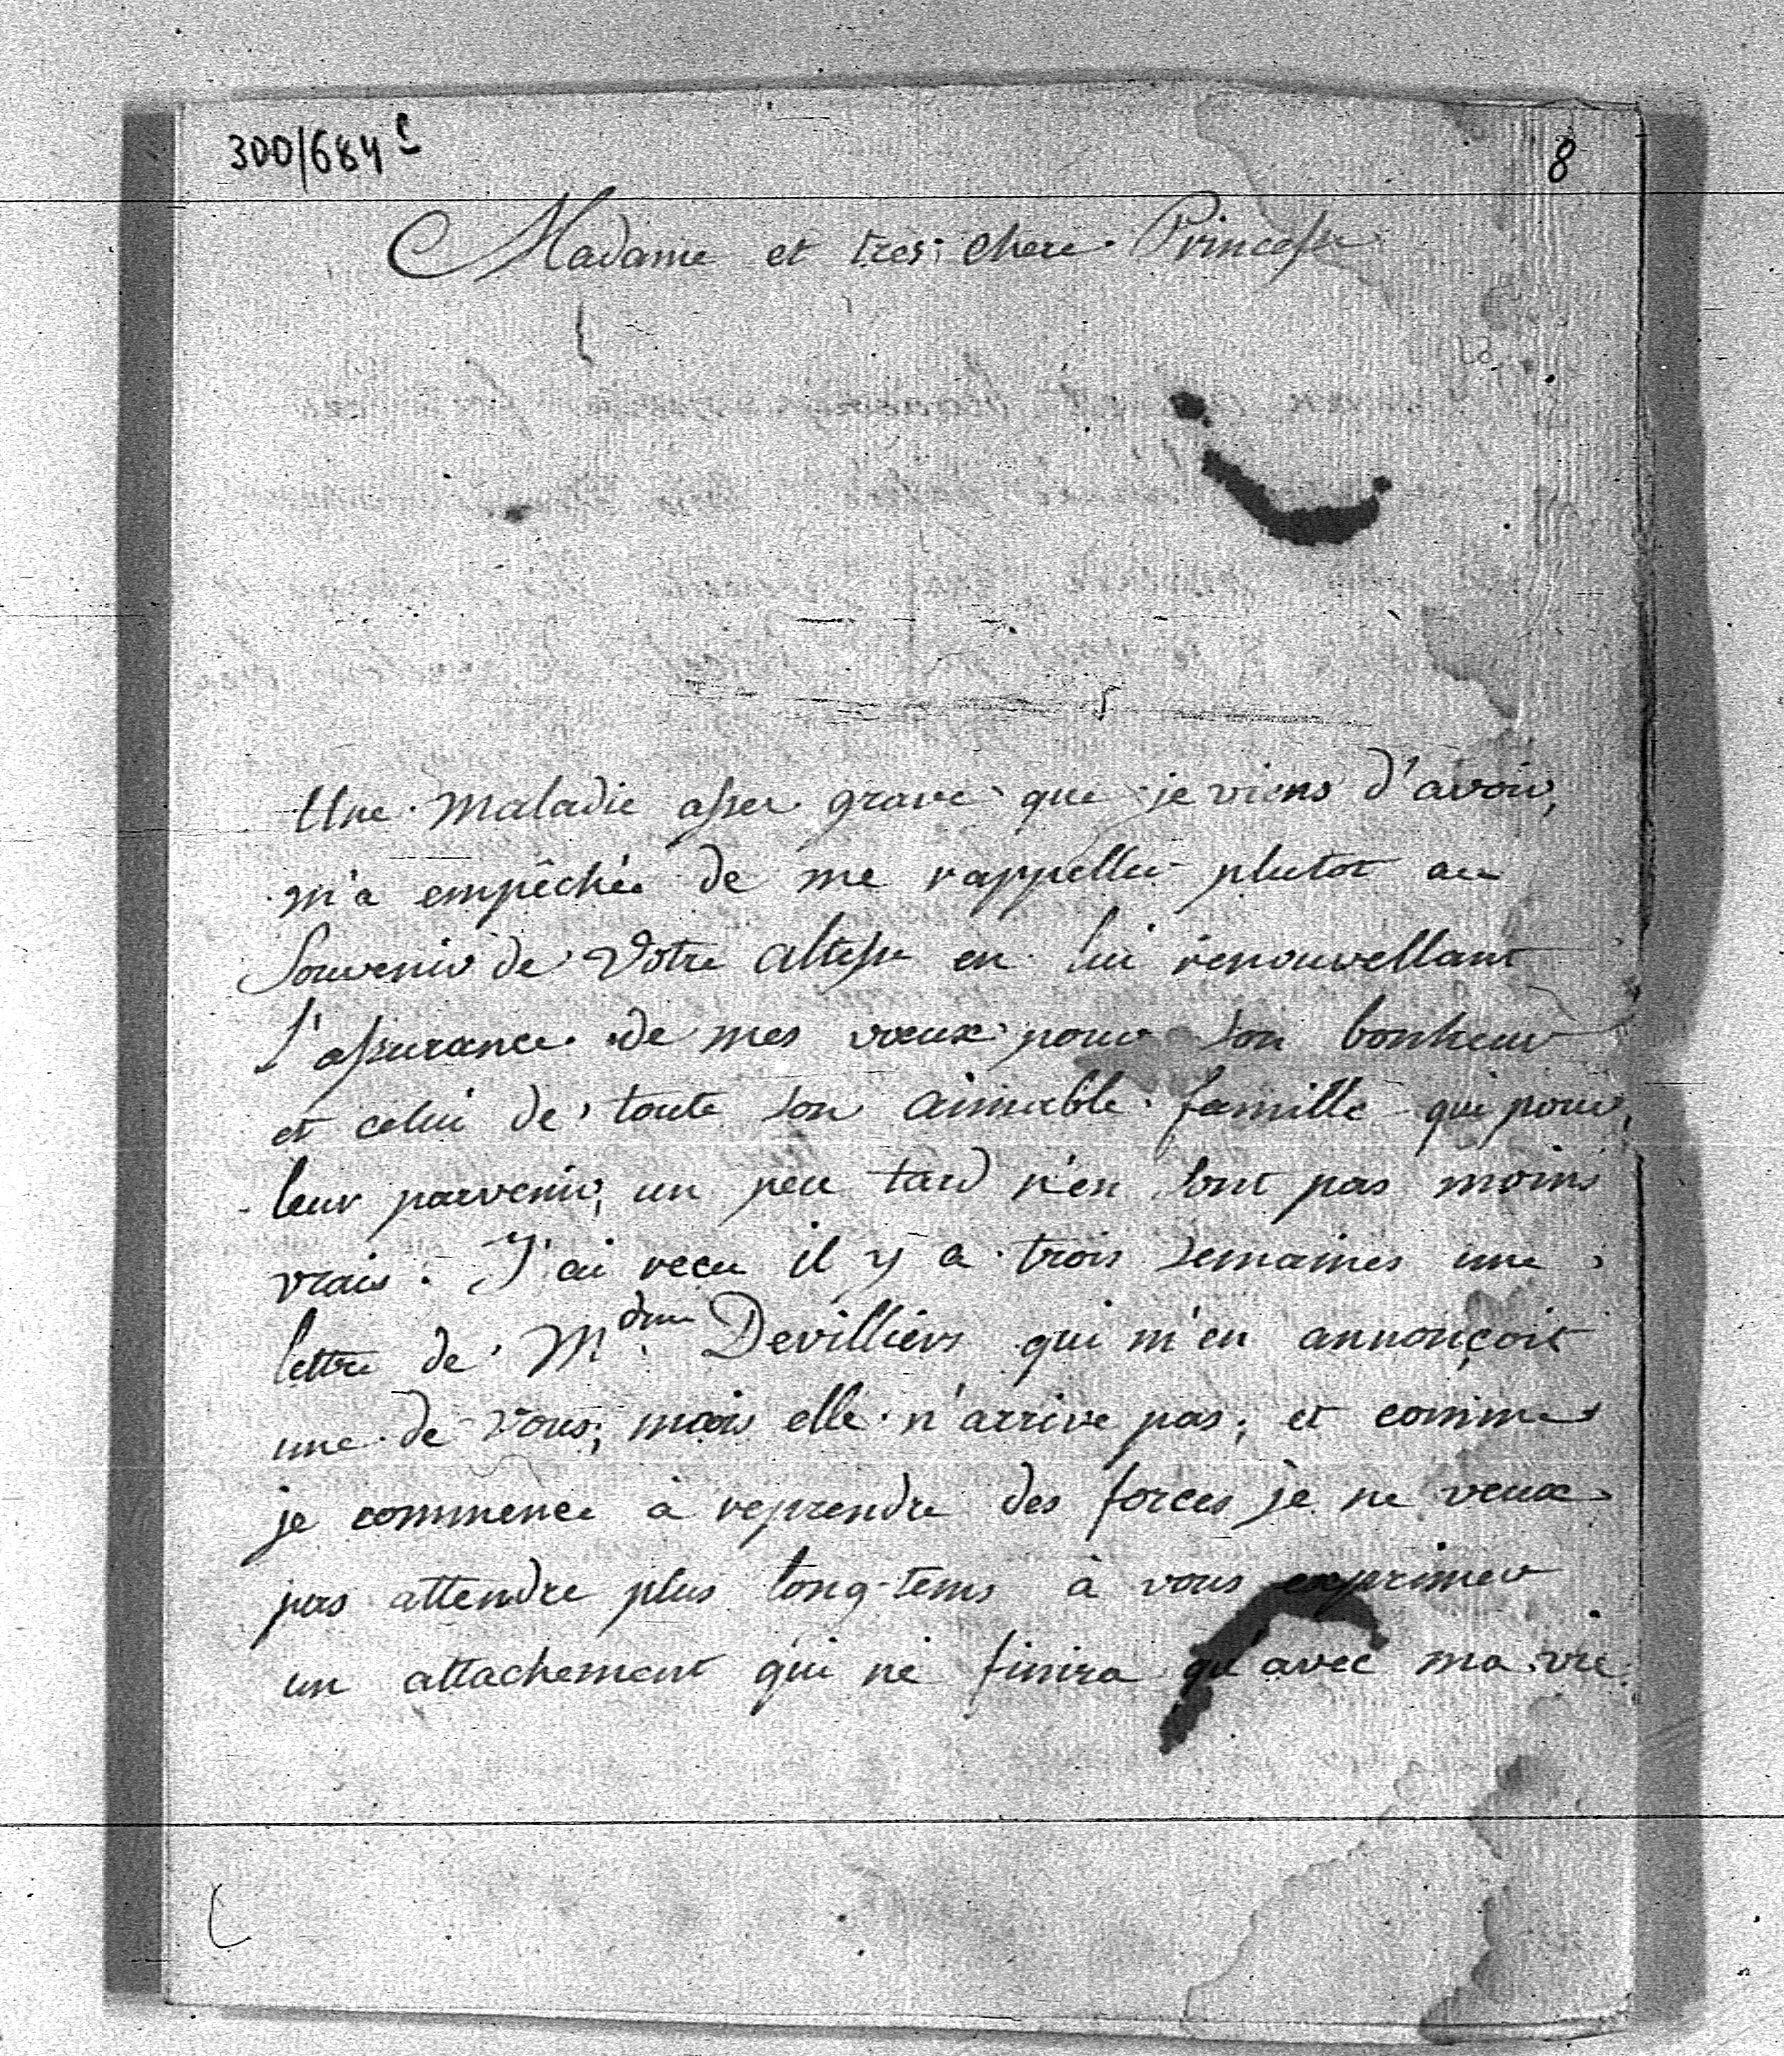 300/684 c
8
Madame et très chere Princesse
Une maladie assez grave que je viens d'avoir,
m'a empêchée de me rappeller plutot au
Souvenir de Votre altesse en lui renouvellant
l'assurance de mes vœux pour son bonheur
et celui de toute son aimable famille qui pour
leur parvenir, un peu tard n'en sont pas moins
vrais. J'ai reçu il y a trois semaines une
lettre de Mdme Devilliers qui m'en annonçoit
une de vous; mais elle n'arrive pas; et comme
je commence à reprendre des forces je ne veux
pas attendre plus long-tems à vous exprimer
un attachement qui ne finira qu'avec ma vie.